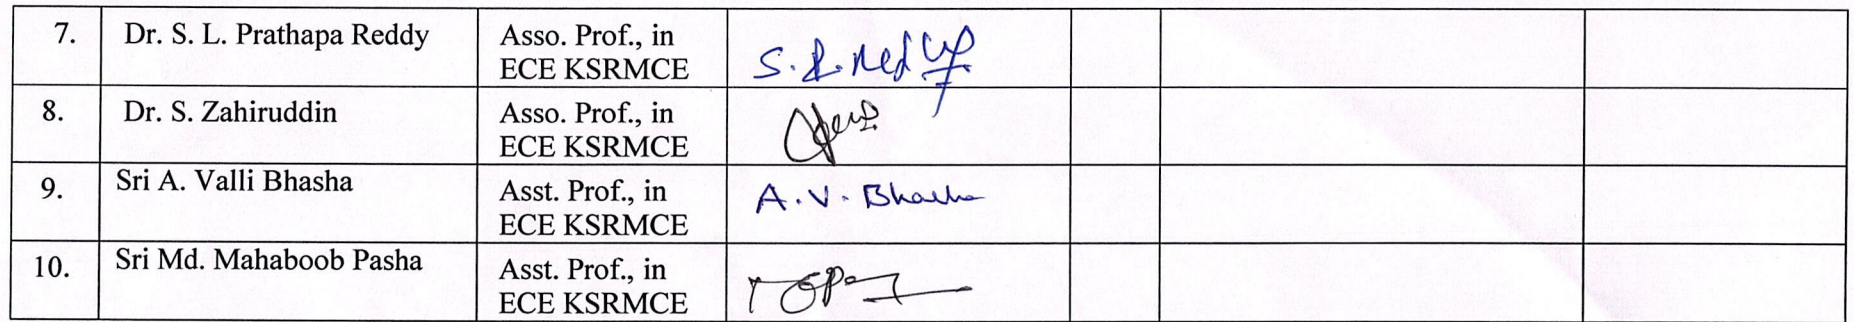 7. Dr. S. L. Prathapa Reddy Asso. Prof., in
ECE KSRMCE
8. Dr. S. Zahiruddin Asso. Prof., in
ECE KSRMCE
9. Sri A. Valli Bhasha Asst. Prof., in A.V. Bhasha
ECE KSRMCE
10. Sri Md. Mahaboob Pasha Asst. Prof., in
ECE KSRMCE